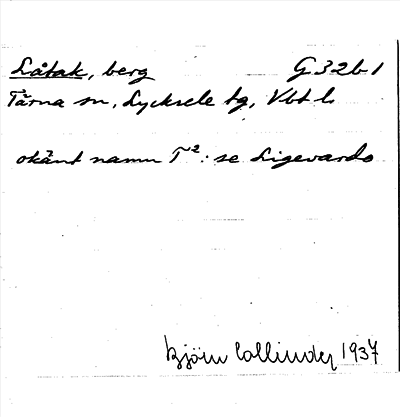 Låtak, berg G 32b1
Tärna sn, Lycksele tg, Vbt l.
okänt namn T²: se Ligevardo
Björn Collinder 1937